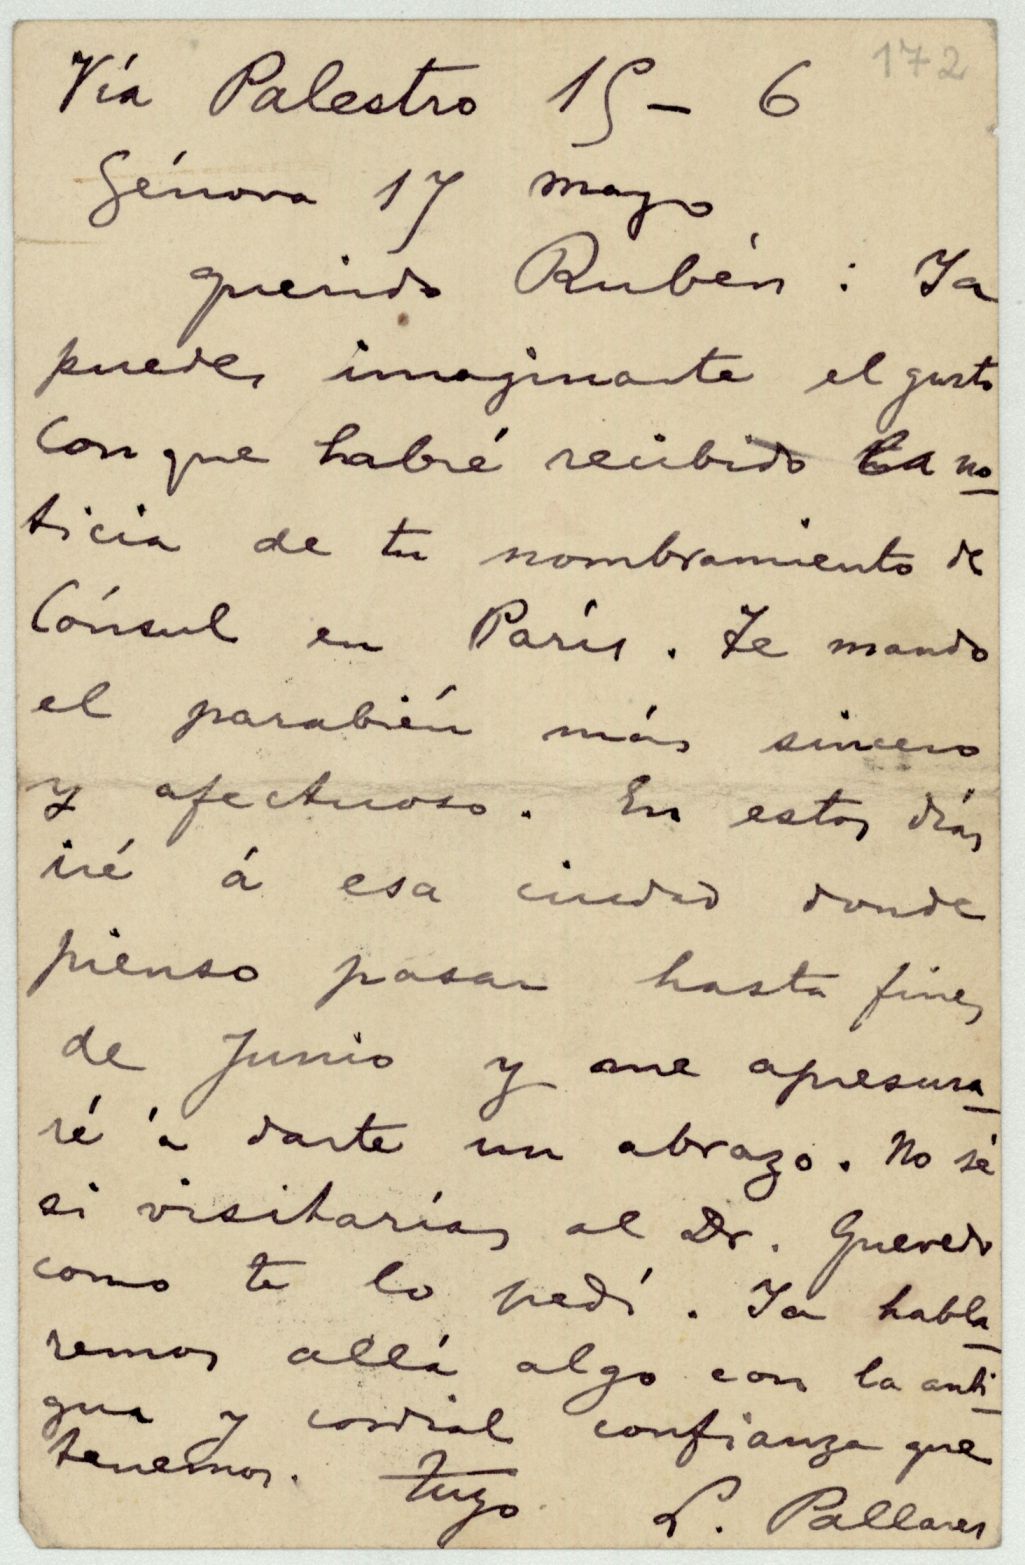 172
Vía Palestro 15 – 6
Génova 17 mayo
querido Rubén : Ya
puedes imaginarte el gusto
con que habré recibido la no
ticia de tu nombramiento de
Cónsul en París. Te mando
el parabién más sincero
y afectuoso. En estos días
iré á esa ciudad donde
pienso pasar hasta fines
de Junio y me apresura
ré á darte un abrazo. No sé
si visitarías al Dr. Quevedo
como te lo pedí. Ya habla
remos allá algo con la anti
gua y cordial confianza que
tenemos. tuyo L. Pallares